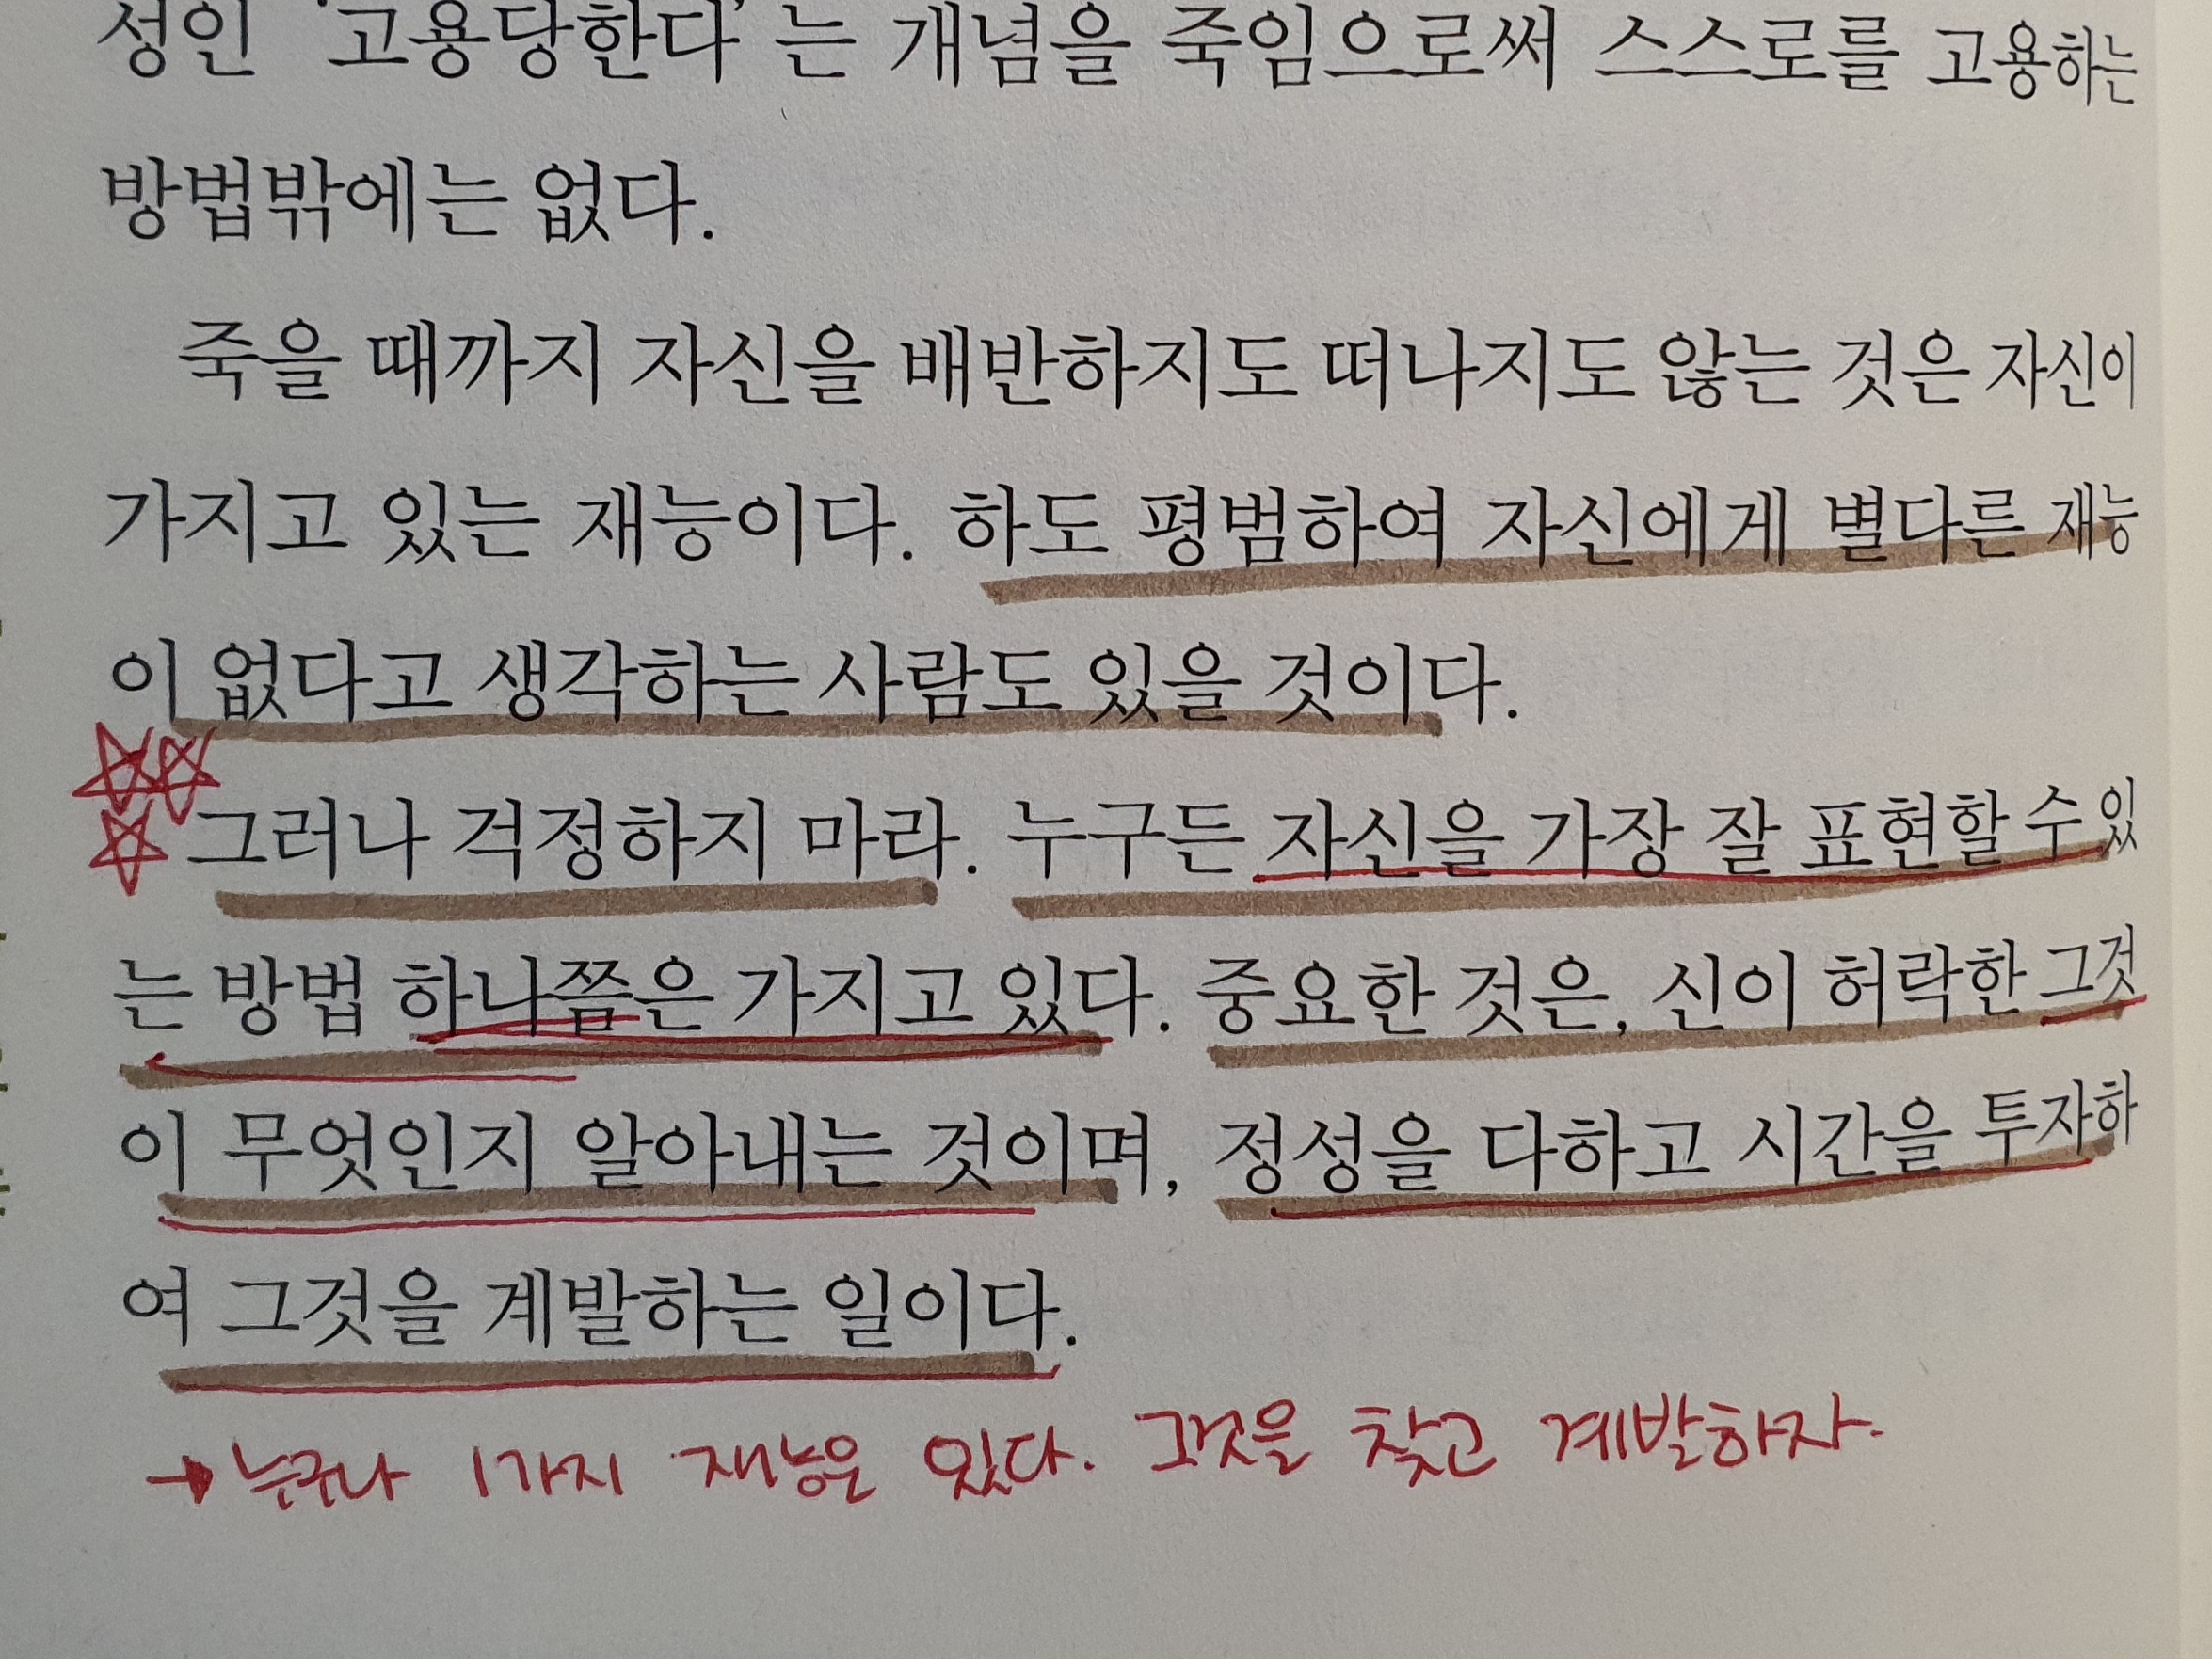 성인 '고용당한다'는 개념을 죽임으로써 스스로를 고용하는
방법밖에는 없다.
죽을 때까지 자신을 배반하지도 떠나지도 않는 것은 자신이
가지고 있는 재능이다. 하도 평범하여 자신에게 별다른 재능
이 없다고 생각하는 사람도 있을 것이다.
그러나 걱정하지 마라. 누구든 자신을 가장 잘 표현할 수 있
는 방법 하나쯤은 가지고 있다. 중요한 것은, 신이 허락한 그것
이 무엇인지 알아내는 것이며, 정성을 다하고 시간을 투자하
여 그것을 계발하는 일이다.
→ 누구나 1가지 재능은 있다. 그것을 찾고 계발하자.